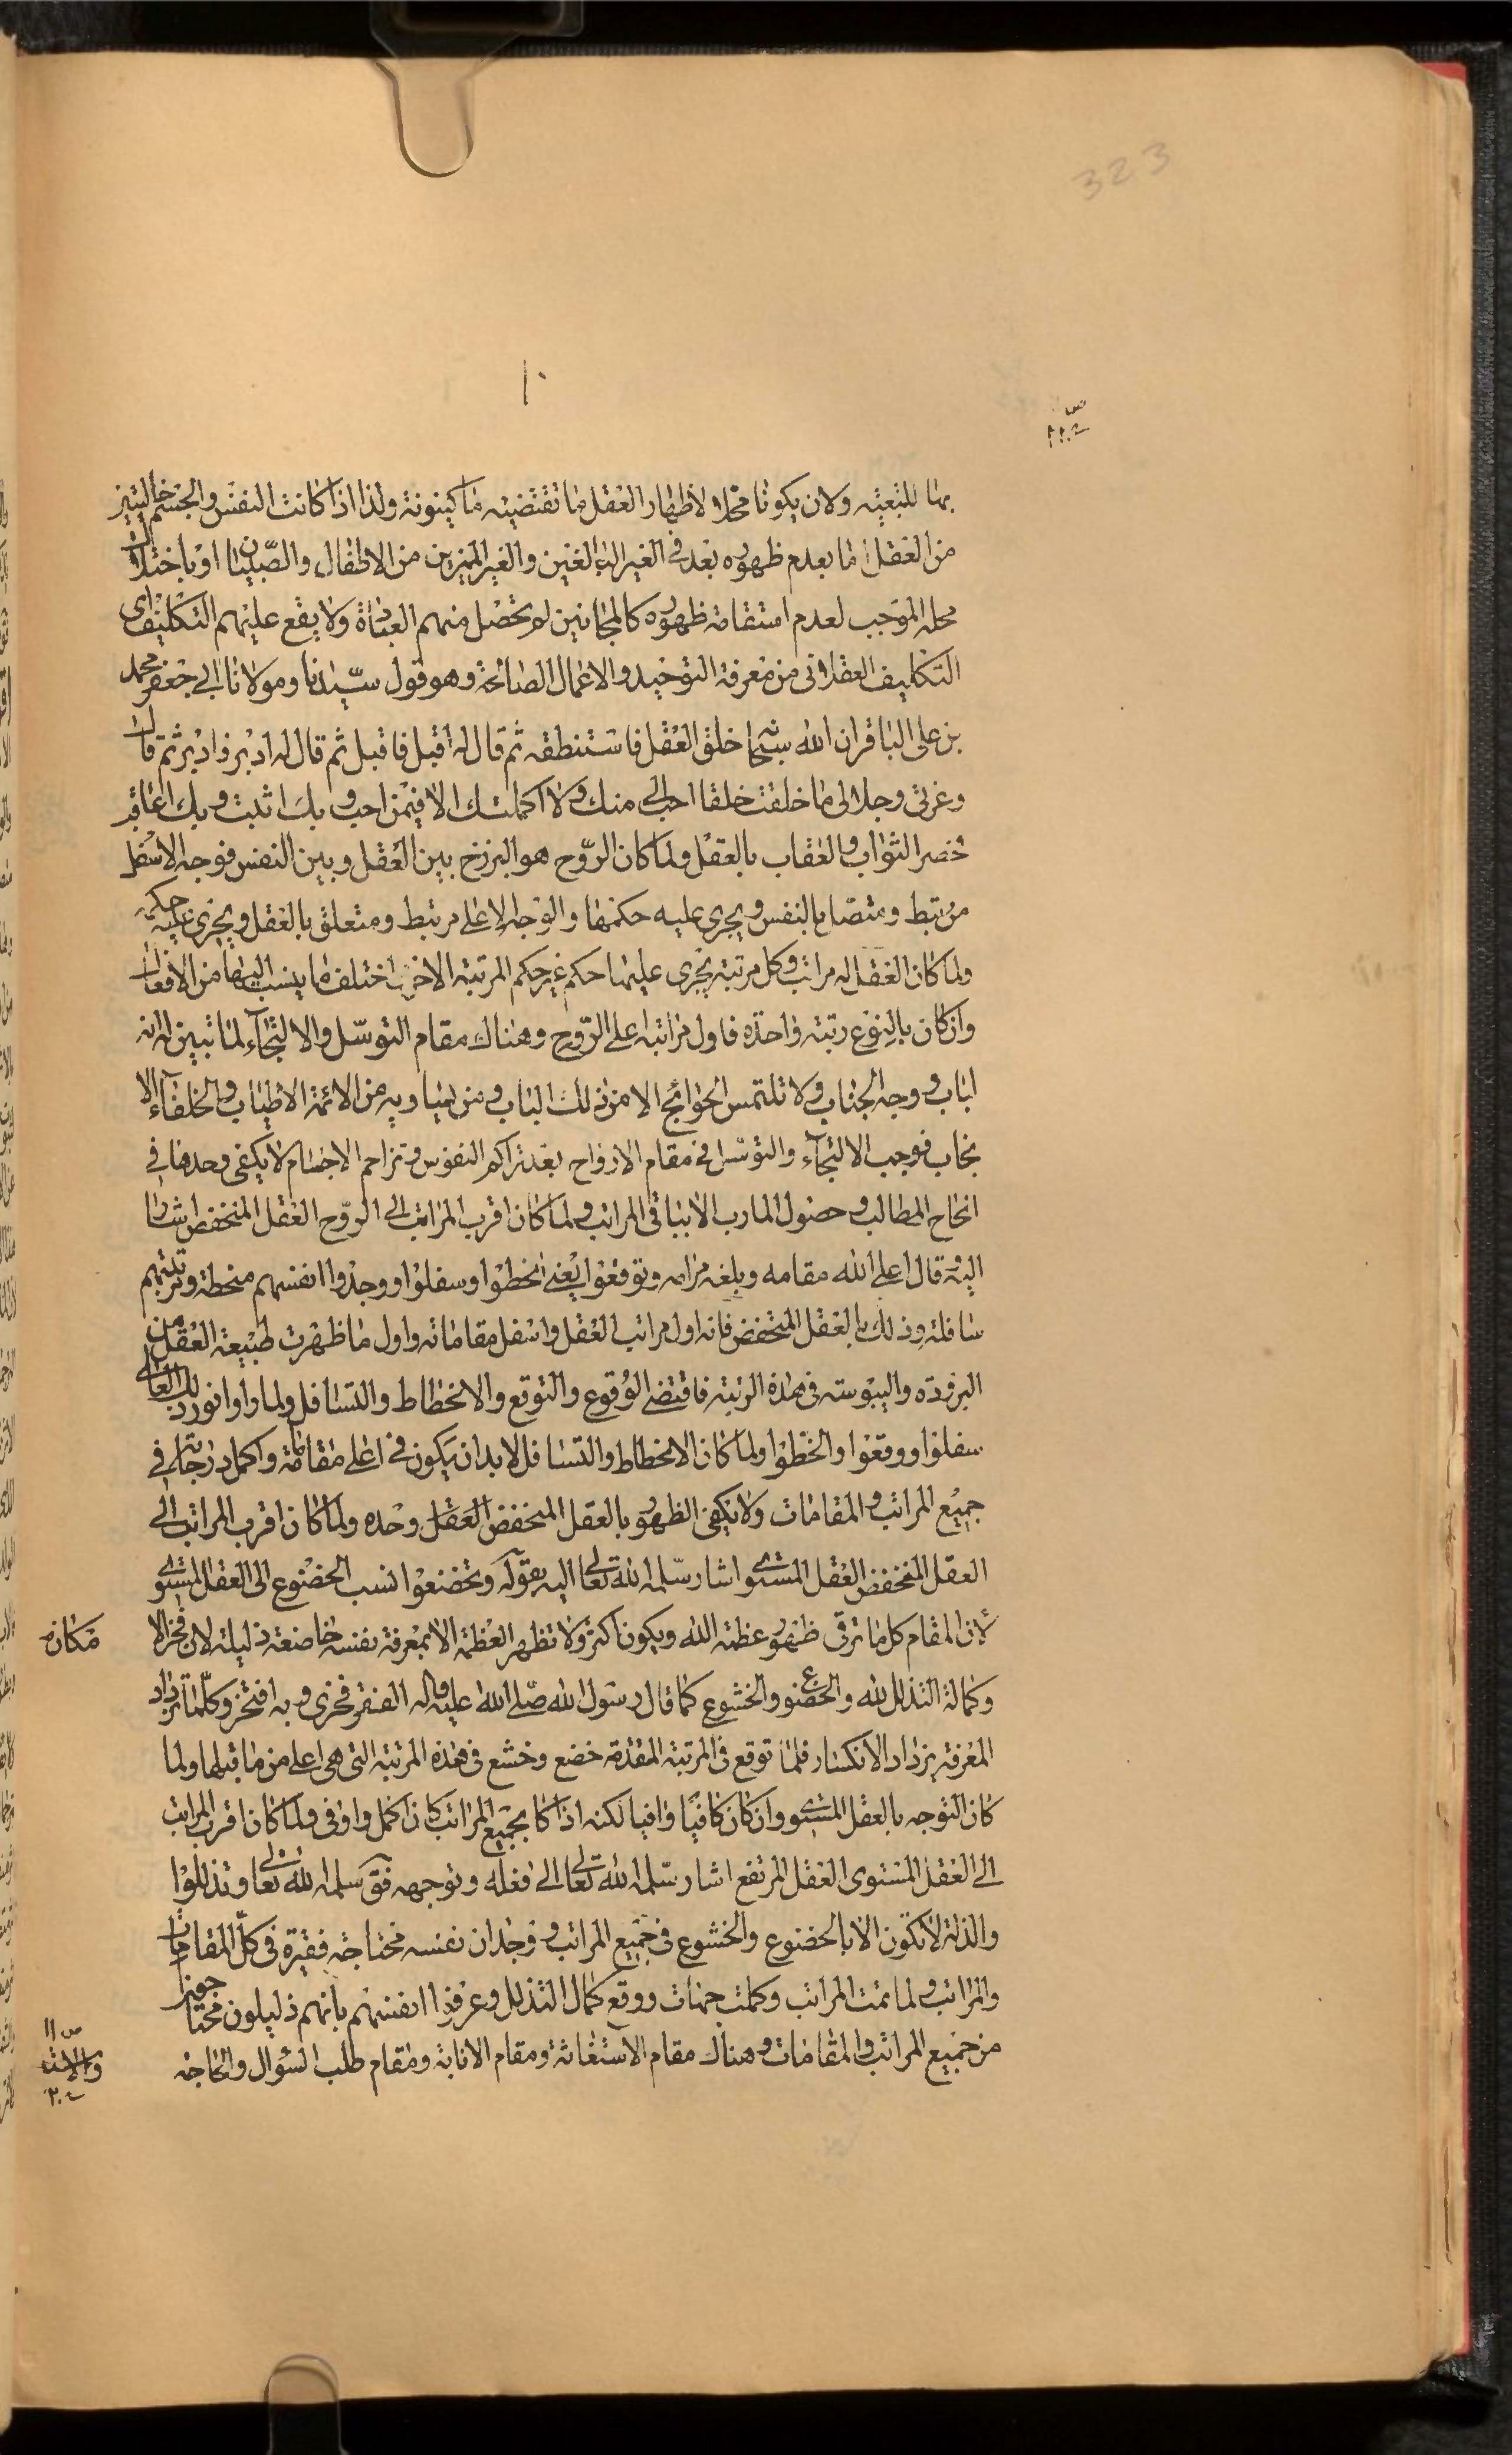 323
١٠
بها للتبعيته ولان يكونا محلا لاظهار العقل ما تقتضيه ما كينونة ولذا اذا كانت النفس والجسم خاليتين
من العقل اما بعدم ظهوره بعد في الغير البالغين والغير المميزين من الاطفال والصبيان او باختلال
محله الموجب لعدم استقامة ظهوره كالمجانين لم تحصل منهم العبادة ولا يقع عليهم التكليف اى
التكليف العقلاني من معرفة التوحيد والاعمال الصالحة وهو قول سيدنا ومولانا ابي جعفر محمد
بن على الباقر ان الله سبحا خلق العقل فاستنطقه ثم قال له اقبل فاقبل ثم قال له ادبر فادبر ثم قال
وعزتى وجلالى ما خلقت خلقا احب الى منك ولا اكملتك الا فيمن احب وبك اثيب وبك اعاقب
فحصر الثواب والعقاب بالعقل ولما كان الروح هو البرزخ بين العقل وبين النفس فوجه الاسفل
مرتبط ومتصل بالنفس ويجرى عليه حكمها والوجه الاعلى مرتبط ومتعلق بالعقل ويجرى عليه حكمه
ولما كان العقل له مراتب وكل مرتبة يجرى عليها حكم غير حكم المرتبة الاخرى اختلف ما ينسب اليها من الافعال
وان كان بالنوع رتبته واحدة فاول مراتبه اعلى الروح وهناك مقام التوسل والالتجاء لما تبين له انه
الباب ووجه الجناب ولا تلتمس الحوائج الا من ذلك الباب ومن يساويه من الائمة الاطياب والخلفاء الا
نجاب فوجب الالتجاء والتوسل في مقام الارواح بعد تراكم النفوس وتزاحم الاجسام لا يكفى وحدها في
انجاح المطالب وحصول المارب الا بباقى المراتب ولما كان اقرب المراتب الى الروح العقل المنخفض اشار
اليه قال اعلى الله مقامه وبلغه مرامه وتوقعوا يعنى انحطوا وسفلوا ووجدوا انفسهم منحطة ورتبتهم
سافلة وذلك بالعقل المنخفض فانه اول مراتب العقل واسفل مقاماته واول ما ظهرت طبيعة العقل من
البرودة واليبوسة في هذه الرتبة فاقتضى الوقوع والتوقع والانحطاط والتسافل ولما راوا نور ذلك العالى
سفلوا ووقعوا وانحطوا ولما كان الانحطاط والتسافل لابد ان يكون في اعلى مقاماته واكمل درجاته في
جميع المراتب والمقامات ولا يكفى الظهور بالعقل المنخفض العقل وحده ولما كان اقرب المراتب الى
العقل المنخفض العقل المستوى اشار سلمه الله تعالى اليه بقوله وتخضعوا نسب الخضوع الى العقل المستوى
لان المقام كل ما ترقى ظهور عظمة الله ويكون اكثر ولا تظهر العظمة الا بمعرفة نفسه خاضعة ذليلة لان فخر الا
مكانه
وكماله التذلل لله والخضوع والخشوع كما قال رسول الله صلى الله عليه واله الفقر فخرى وبه افتخر وكلما تزداد
المعرفة يزداد الانكسار فلما توقع في المرتبة المقدمة خضع وخشع في هذه المرتبة التى هى اعلى من ما قبلها ولما
كان التوجه بالعقل المستوى وان كان كافيا وافيا لكنه اذا كا بجميع المراتب كان اكمل واوفى ولما كان اقرب المراتب
الى العقل المستوى العقل المرتفع اشار سلمه الله تعالى الى فعله وتوجهه فق سلمه الله تعالى وتذللوا
والذلة لا تكون الا بالخضوع والخشوع في جميع المراتب ووجدان نفسه محتاجة فقيرة في كل المقامات
والمراتب ولما تمت المراتب وكملت جهات ووقع كمال التذلل وعرفوا انفسهم بانهم ذليلون محتاجون
من جميع المراتب والمقامات وهناك مقام الاستغاثة ومقام الانابة ومقام طلب السؤال والحاجة
ص ١١